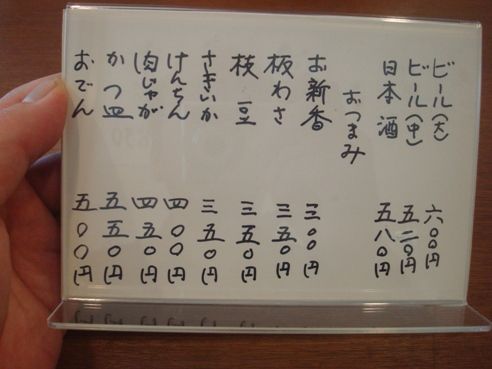 ビール(大) 六〇〇円
ビール(中) 五二〇円
日本酒 五八〇円
おつまみ
お新香 三〇〇円
板わさ 三五〇円
枝豆 三五〇円
さきいか 三五〇円
けんちん 四〇〇円
肉じゃが 四五〇円
かつ皿 五五〇円
おでん 五〇〇円